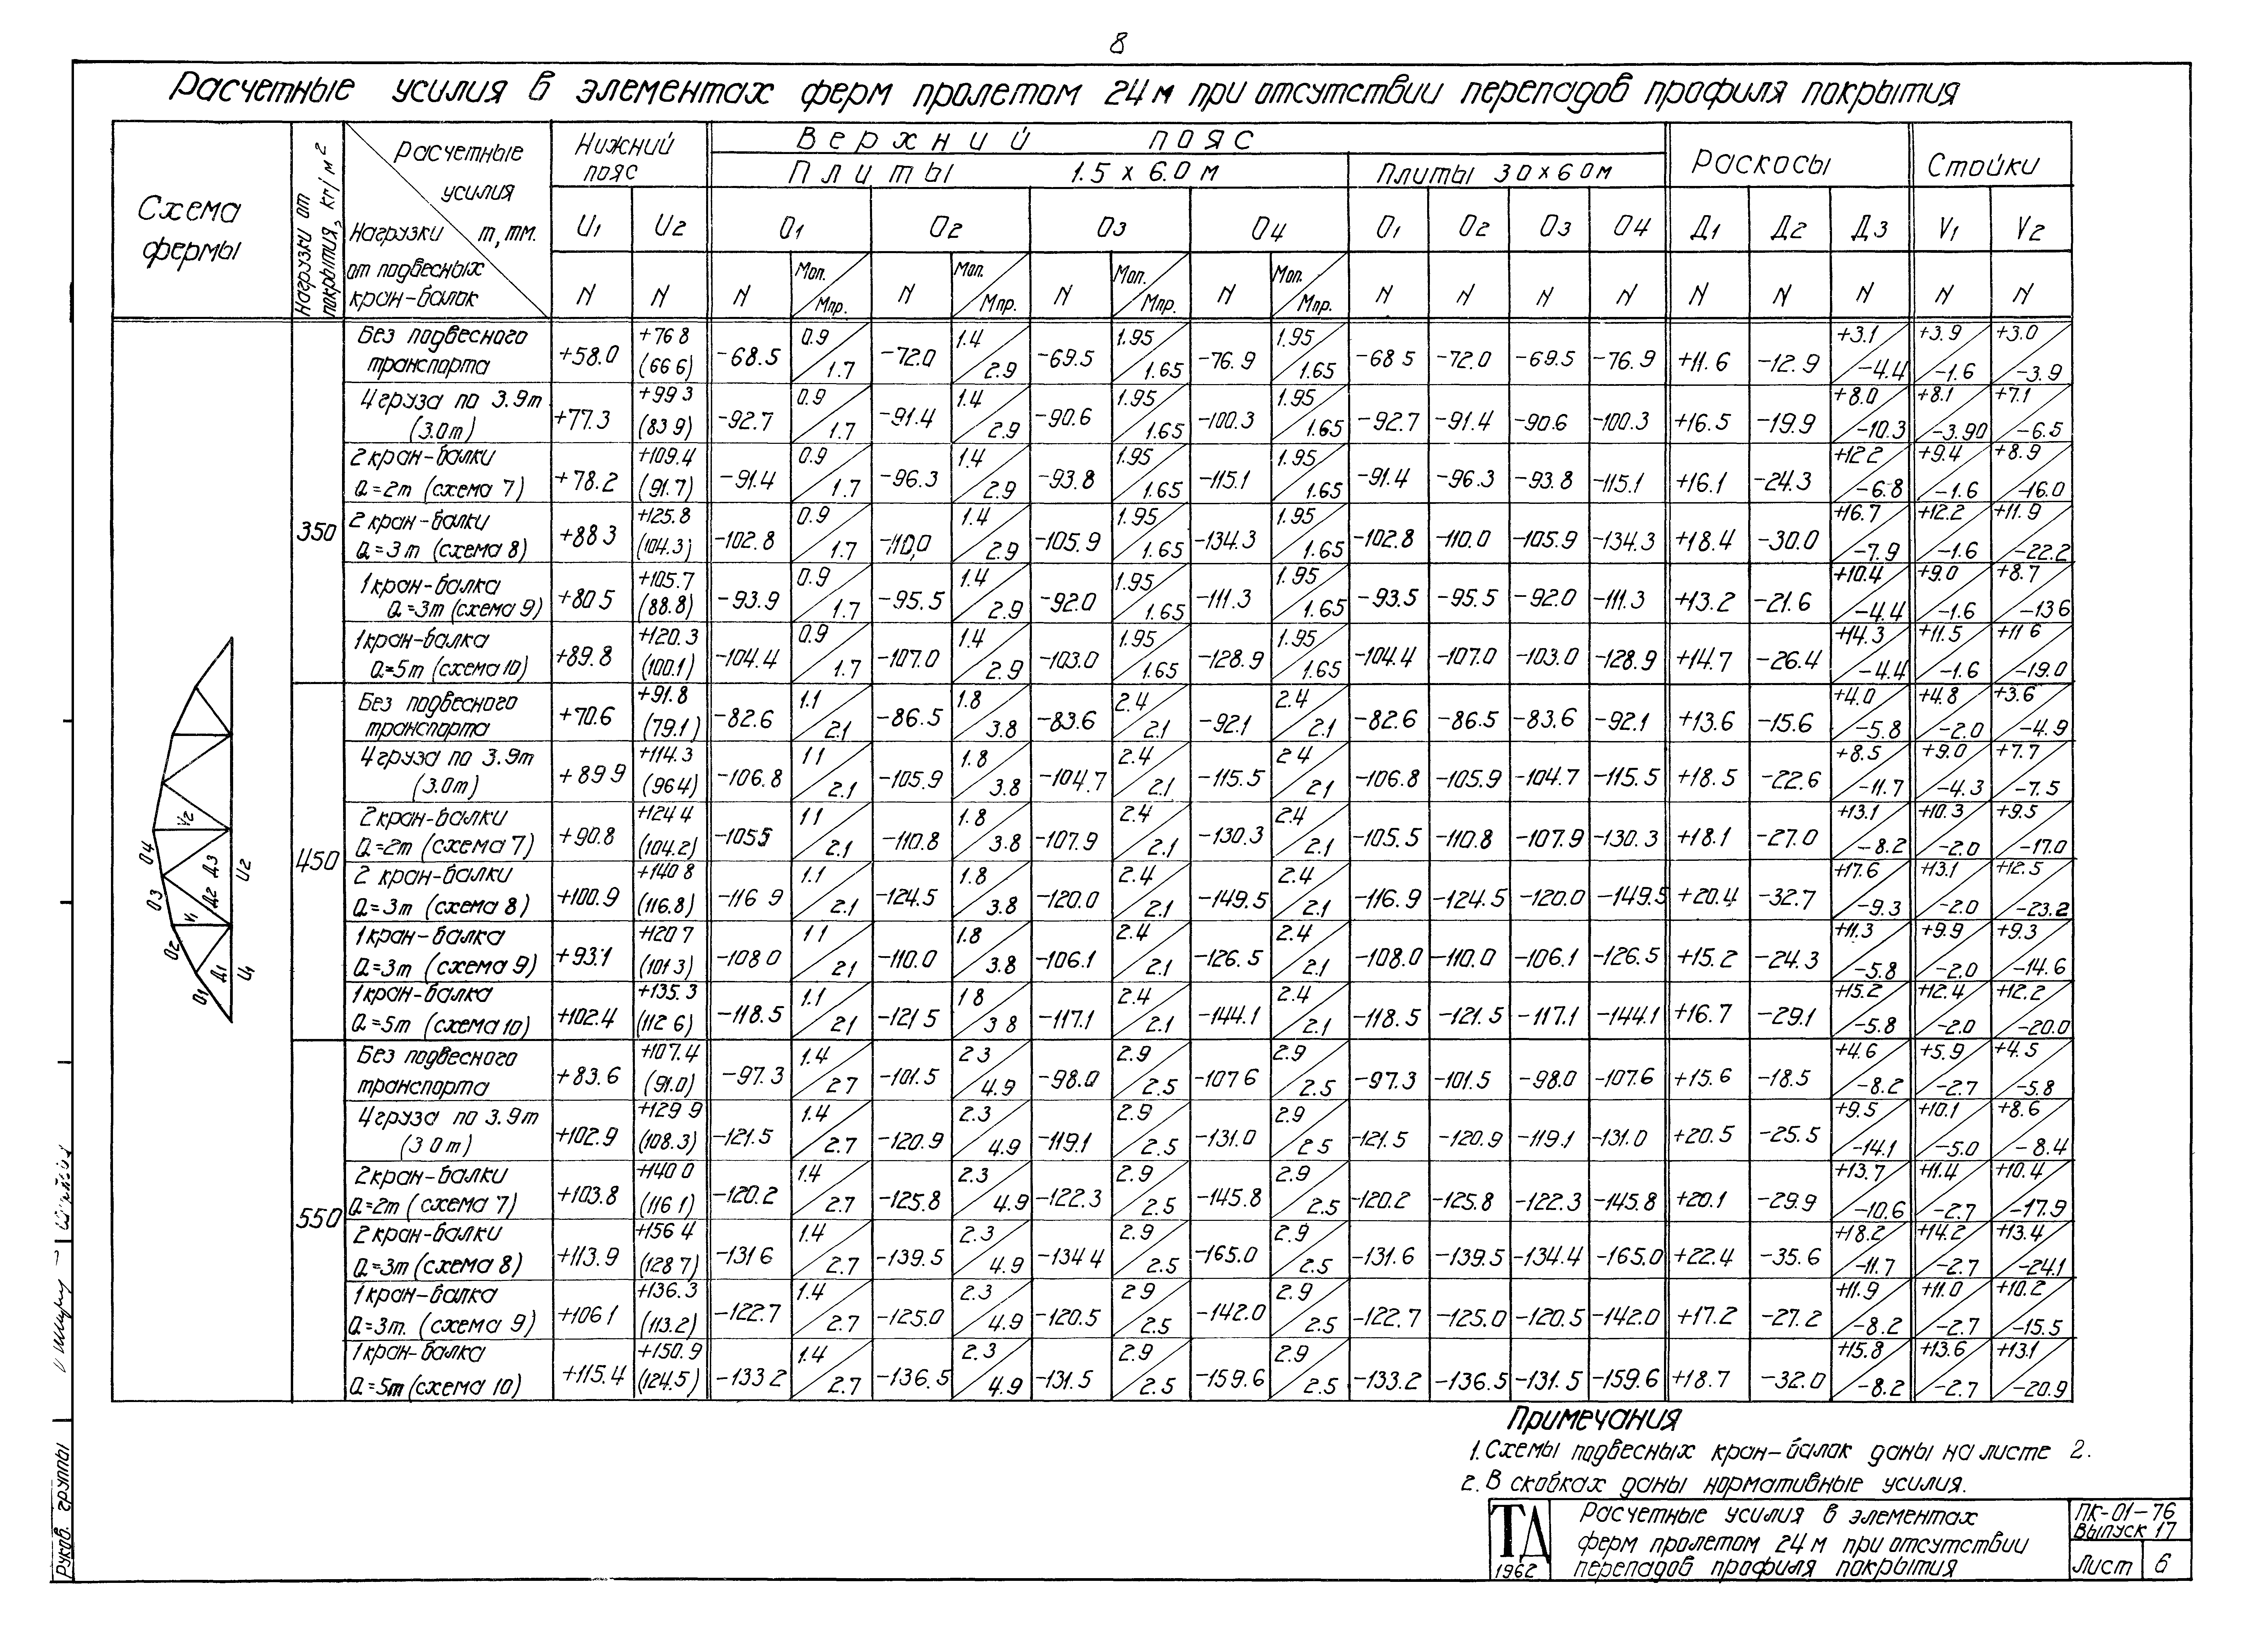 8
Расчетные усилия в элементах ферм пролетом 24м при отсутствии перепадов профиля покрытия
Схема фермы
Нагрузки от покрытия, кг/м²
Расчетные усилия т, тм.
Нагрузки от подвесных кран-балок
Нижний пояс
Верхний пояс
Плиты 1.5 х 6.0 м
Плиты 30х60м
Раскосы
Стойки
U1 U2 O1 O2 O3 O4 O1 O2 O3 O4 Д1 Д2 Д3 V1 V2
N N N Моп. Мпр. N Моп. Мпр. N Моп. Мпр. N Моп. Мпр. N N N N N N N N N
350
Без подвесного транспорта +58.0 +76 8 (66 6) -68.5 0.9 1.7 -72.0 1.4 2.9 -69.5 1.95 1.65 -76.9 1.95 1.65 -68 5 -72.0 -69.5 -76.9 +11.6 -12.9 +3.1 -4.4 +3.9 -1.6 +3.0 -3.9
4 груза по 3.9т (3.0т) +77.3 +99 3 (83 9) -92.7 0.9 1.7 -91.4 1.4 2.9 -90.6 1.95 1.65 -100.3 1.95 1.65 -92.7 -91.4 -90.6 -100.3 +16.5 -19.9 +8.0 -10.3 +8.1 -3.90 +7.1 -6.5
2 кран-балки Q=2т (схема 7) +78.2 +109.4 (91.7) -91.4 0.9 1.7 -96.3 1.4 2.9 -93.8 1.95 1.65 -115.1 1.95 1.65 -91.4 -96.3 -93.8 -115.1 +16.1 -24.3 +12 2 -6.8 +9.4 -1.6 +8.9 -16.0
2 кран-балки Q=3т (схема 8) +88.3 +125.8 (104.3) -102.8 0.9 1.7 -110,0 1.4 2.9 -105.9 1.95 1.65 -134.3 1.95 1.65 -102.8 -110.0 -105.9 -134.3 +18.4 -30.0 +16.7 -7.9 +12.2 -1.6 +11.9 -22.2
1 кран-балка Q=3т (схема 9) +80 5 +105.7 (88.8) -93.9 0.9 1.7 -95.5 1.4 2.9 -92.0 1.95 1.65 -111.3 1.95 1.65 -93.5 -95.5 -92.0 -111.3 +13.2 -21.6 +10.4 -4.4 +9.0 -1.6 +8.7 -13 6
1 кран-балка Q=5т (схема 10) +89.8 +120.3 (100.1) -104.4 0.9 1.7 -107.0 1.4 2.9 -103.0 1.95 1.65 -128.9 1.95 1.65 -104.4 -107.0 -103.0 -128.9 +14.7 -26.4 +14.3 -4.4 +11.5 -1.6 +11 6 -19.0
450
Без подвесного транспорта +70.6 +91.8 (79.1) -82.6 1.1 2.1 -86.5 1.8 3.8 -83.6 2.4 2.1 -92.1 2.4 2.1 -82.6 -86.5 -83.6 -92.1 +13.6 -15.6 +4.0 -5.8 +4.8 -2.0 +3.6 -4.9
4 груза по 3.9т (3.0т) +89 9 +114.3 (96 4) -106.8 1 1 2.1 -105.9 1.8 3.8 -104.7 2.4 2.1 -115.5 2 4 2 1 -106.8 -105.9 -104.7 -115.5 +18.5 -22.6 +8.5 -11.7 +9.0 -4.3 +7.7 -7.5
2 кран-балки Q=2т (схема 7) +90.8 +124 4 (104.2) -105 5 1 1 2.1 -110.8 1.8 3.8 -107.9 2.4 2.1 -130.3 2.4 2.1 -105.5 -110.8 -107.9 -130.3 +18.1 -27.0 +13.1 -8.2 +10.3 -2.0 +9.5 -17.0
2 кран-балки Q=3т (схема 8) +100.9 +140 8 (116.8) -116 9 1.1 2.1 -124.5 1.8 3.8 -120.0 2.4 2.1 -149.5 2.4 2.1 -116.9 -124.5 -120.0 -149.5 +20.4 -32.7 +17.6 -9.3 +13.1 -2.0 +12.5 -23.2
1 кран-балка Q=3т (схема 9) +93.1 +120 7 (101 3) -108 0 1 1 2 1 -110.0 1.8 3.8 -106.1 2.4 2.1 -126.5 2.4 2.1 -108.0 -110.0 -106.1 -126.5 +15.2 -24.3 +11.3 -5.8 +9.9 -2.0 +9.3 -14.6
1 кран-балка Q=5т (схема 10) +102.4 +135.3 (112 6) -118.5 1.1 2 1 -121 5 1 8 3 8 -117.1 2.4 2.1 -144.1 2.4 2.1 -118.5 -121.5 -117.1 -144.1 +16.7 -29.1 +15.2 -5.8 +12.4 -2.0 +12.2 -20.0
550
Без подвесного транспорта +83.6 +107.4 (91.0) -97.3 1.4 2 7 -101.5 2 3 4.9 -98.0 2.9 2.5 -107 6 2.9 2.5 -97.3 -101.5 -98.0 -107.6 +15.6 -18.5 +4.6 -8.2 +5.9 -2.7 +4.5 -5.8
4 груза по 3.9т (3 0т) +102.9 +129 9 (108.3) -121.5 1.4 2.7 -120.9 2.3 4.9 -119.1 2.9 2.5 -131.0 2.9 2 5 -121.5 -120.9 -119.1 -131.0 +20.5 -25.5 +9.5 -14.1 +10.1 -5.0 +8.6 -8.4
2 кран-балки Q=2т (схема 7) +103.8 +140 0 (116 1) -120.2 1.4 2.7 -125.8 2.3 4.9 -122.3 2.9 2.5 -145.8 2.9 2.5 -120.2 -125.8 -122.3 -145.8 +20.1 -29.9 +13.7 -10.6 +11.4 -2.7 +10.4 -17.9
2 кран-балки Q=3т (схема 8) +113.9 +156 4 (128 7) -131 6 1.4 2.7 -139.5 2.3 4.9 -134 4 2.9 2.5 -165.0 2.9 2.5 -131.6 -139.5 -134.4 -165.0 +22.4 -35.6 +18.2 -11.7 +14.2 -2.7 +13.4 -24.1
1 кран-балка Q=3т. (схема 9) +106 1 +136.3 (113.2) -122.7 1.4 2.7 -125.0 2.3 4.9 -120.5 2 9 2.5 -142.0 2.9 2.5 -122.7 -125.0 -120.5 -142.0 +17.2 -27.2 +11.9 -8.2 +11.0 -2.7 +10.2 -15.5
1 кран-балка Q=5т (схема 10) +115.4 +150.9 (124.5) -133 2 1.4 2.7 -136.5 2.3 4.9 -131.5 2.9 2.5 -159.6 2.9 2.5 -133.2 -136.5 -131.5 -159.6 +18.7 -32.0 +15.8 -8.2 +13.6 -2.7 +13.1 -20.9
O1 O2 O3 O4 Д1 V1 Д2 Д3 V2 U1 U2
Примечания
1. Схемы подвесных кран-балок даны на листе 2.
2. В скобках даны нормативные усилия.
ТД
1962
Расчетные усилия в элементах
ферм пролетом 24м при отсутствии
перепадов профиля покрытия
ПК-01-76
Выпуск 17
Лист 6
Руков. группы